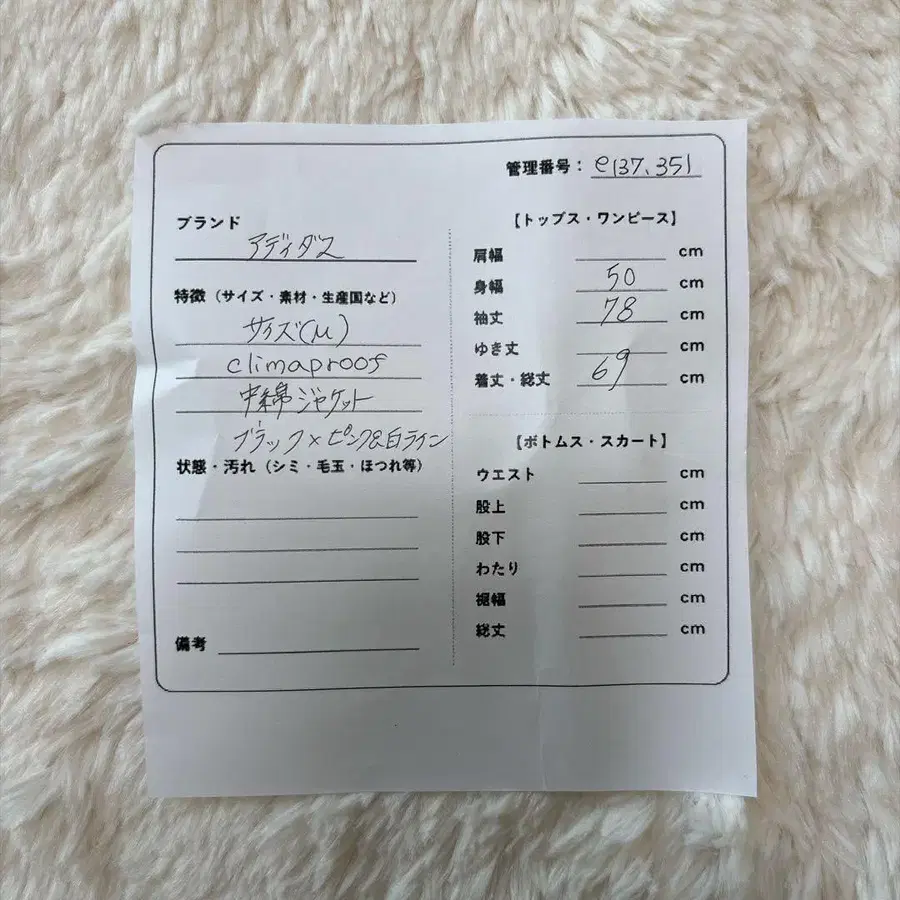 管理番号： e137.351
ブランド
アディダス
特徴（サイズ・素材・生産国など）
サイズ(M)
climaproof
中綿ジャケット
ブラック×ピンク&白ライン
状態・汚れ（シミ・毛玉・ほつれ等）
備考
【トップス・ワンピース】
肩幅 cm
身幅 50 cm
袖丈 78 cm
ゆき丈 cm
着丈・総丈 69 cm
【ボトムス・スカート】
ウエスト cm
股上 cm
股下 cm
わたり cm
裾幅 cm
総丈 cm